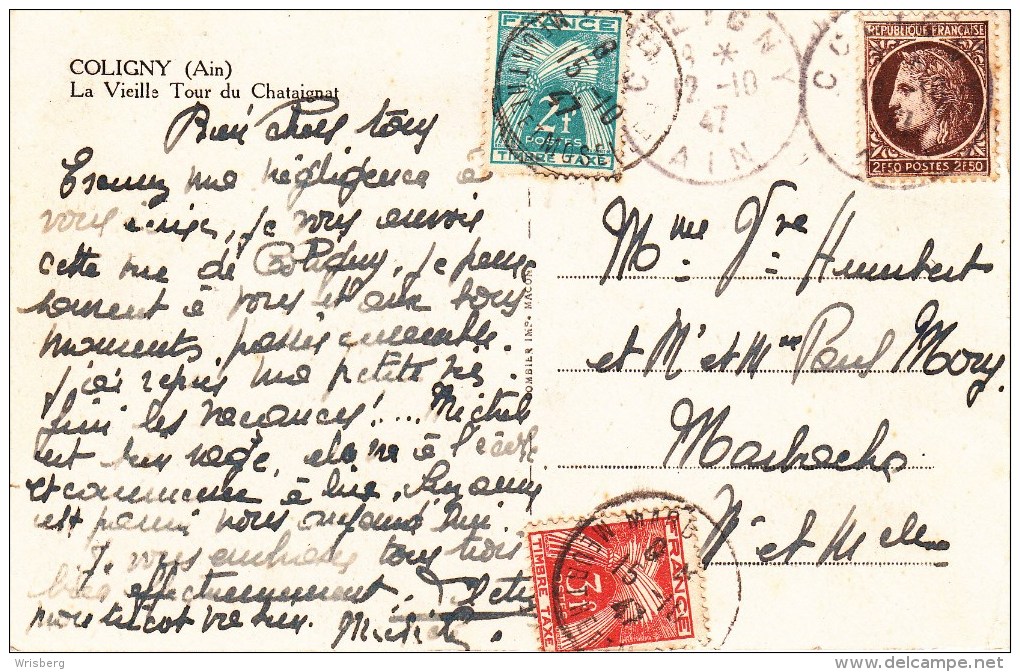 COLIGNY (Ain)
La Vieille Tour du Chataignat
Bien chers tous
Excusez ma négligence à
vous écrire, je vous envoie
cette vue de Coligny. je pense
souvent à vous et aux bons
moments, passés ensemble.
j'ai repris ma petite vie.
fini les vacances!.... Michel
est très sage, elle va à l'école
et commence à lire. Suzanne
est parmi nous aujourd'hui
Je vous embrasse tous trois
bien affectueusement.
FRANCE
2f
POSTES
TIMBRE TAXE
COLIGNY
2-10
47
AIN
RÉPUBLIQUE FRANÇAISE
2F50 POSTES 2F50
COMBIER IMP. MACON
Mme Vve Humbert
et Mr et Mme Paul Mory
Marbache
Mthe et Melle
FRANCE
3f
TIMBRE TAXE
MEURTHE
47
Wrisberg
delcampe.net